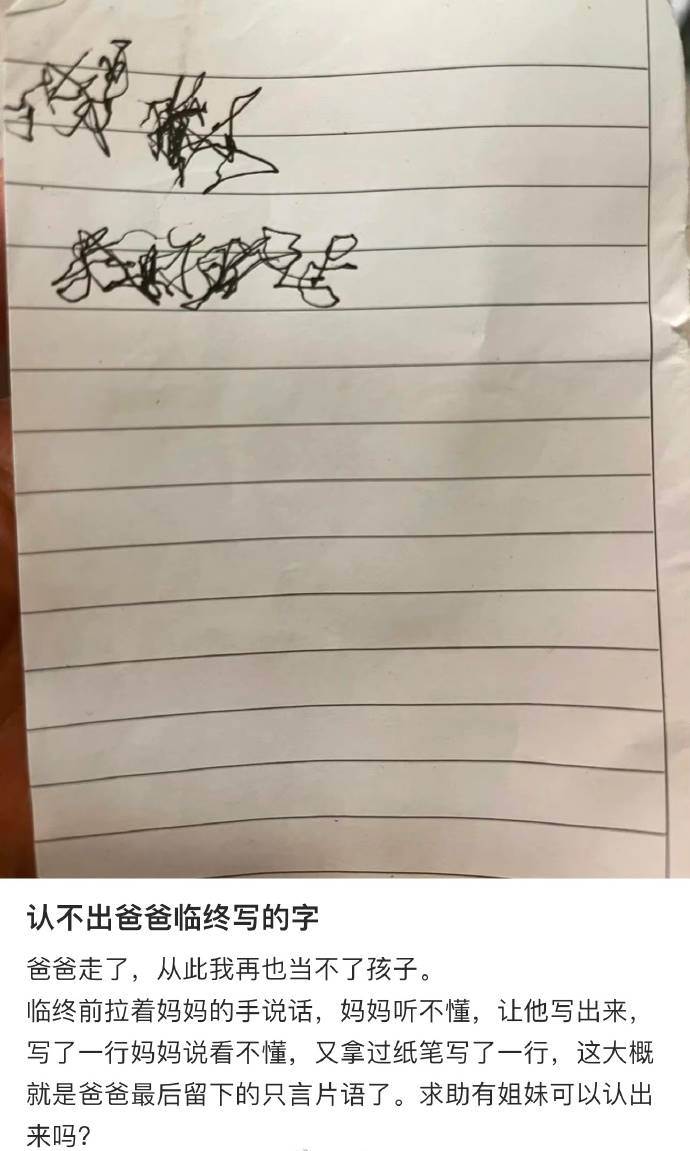 认不出爸爸临终写的字
爸爸走了，从此我再也当不了孩子。
临终前拉着妈妈的手说话，妈妈听不懂，让他写出来，
写了一行妈妈说看不懂，又拿过纸笔写了一行，这大概
就是爸爸最后留下的只言片语了。求助有姐妹可以认出
来吗？